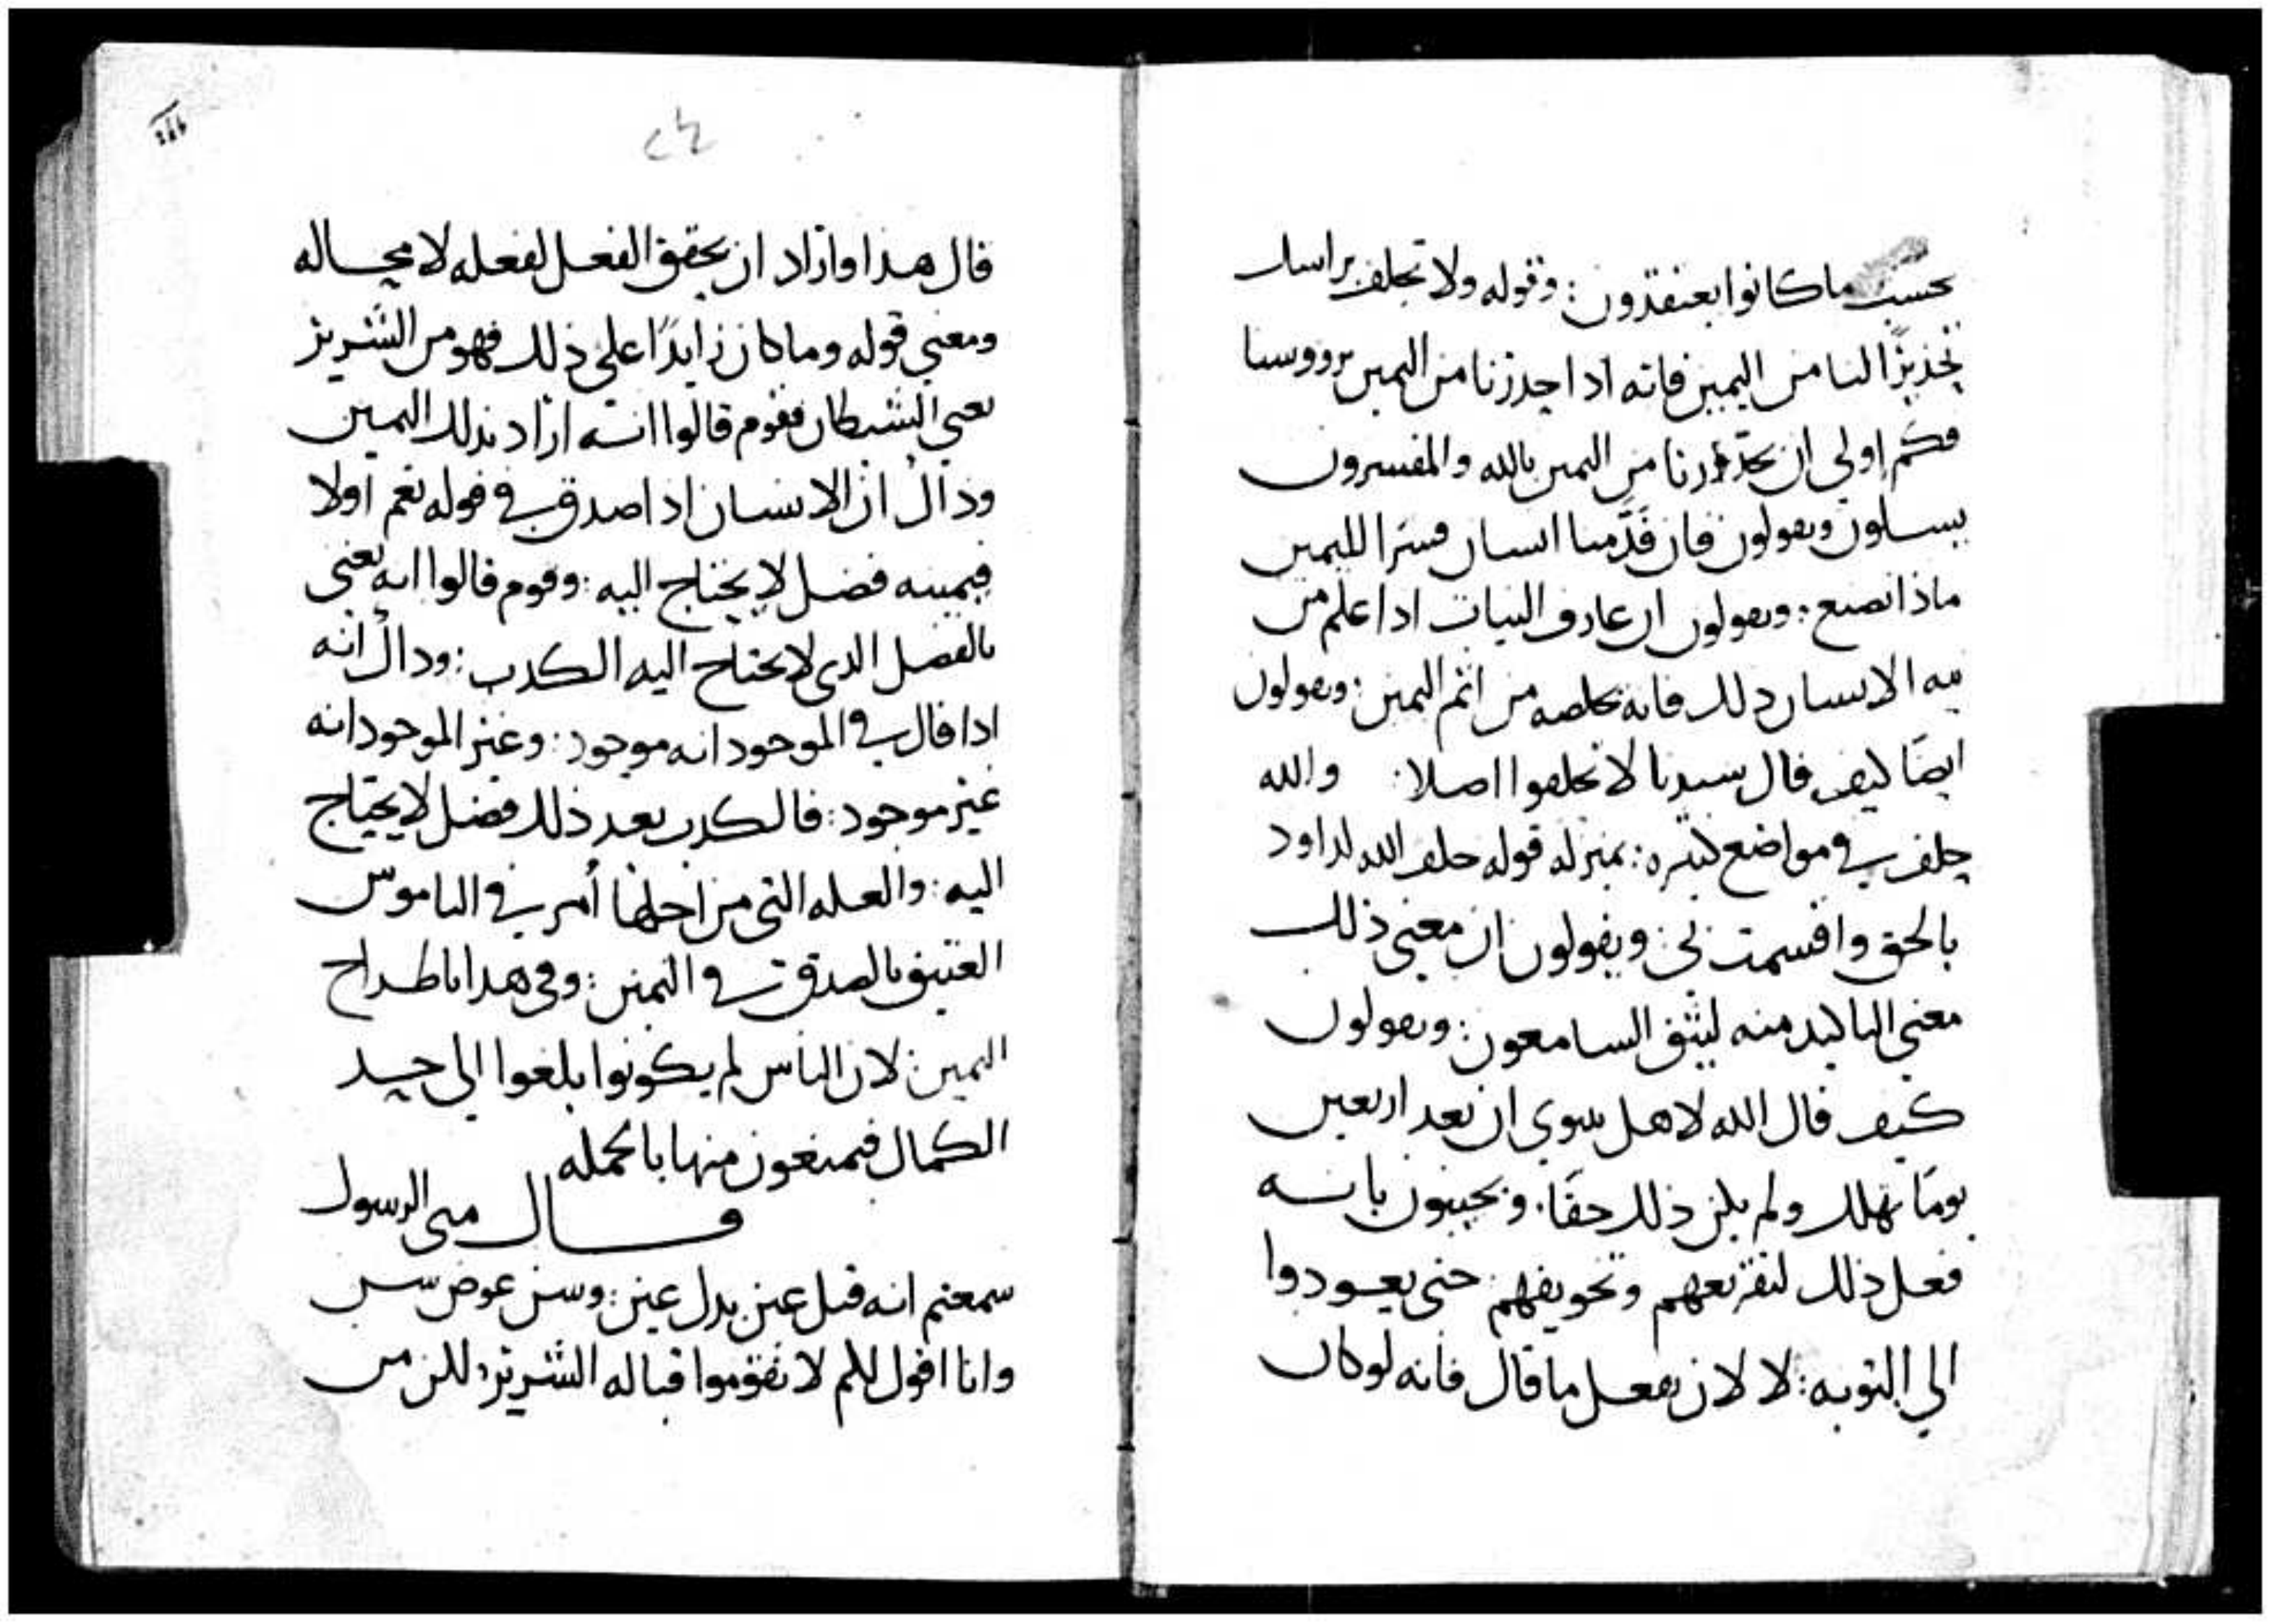 بحسب ماكانوا يعتقدون : وقوله ولا تحلف براسك
تحذيرًا لنا من اليمين فانه اذا حذرنا من اليمين برووسنا
فكم اولي ان يحذرنا من اليمين بالله والمفسرون
يسالون ويقولون فان قدمنا انسان قسرا لليمين
ماذا نصنع : ويقولون ان عارف النيات اذا علم من
نيه الانسان ذلك فانه يخلصه من اثم اليمين : ويقولون
ايضًا كيف قال سيدنا لا تحلفوا اصلا : والله
حلف في مواضع كثيره : بمنزله قوله حلف الله لداود
بالحق واقسمت بي ويقولون ان معني ذلك
معني التاكيد منه ليثق السامعون : ويقولون
كيف قال الله لاهل نينوي ان بعد اربعين
يومًا تهلك ولم يكن ذلك حقًا . ويجيبون بانه
فعل ذلك لتقريعهم وتخويفهم حتى يعودوا
الي التوبه : لا لان يفعل ما قال فانه لو كان
٢٤
قال هذا واراد ان يحقق الفعل لفعله لا محاله
ومعني قوله وما كان زايدًا علي ذلك فهو من الشرير
يعني الشيطان فقوم قالوا انه اراد بذلك اليمين
وذاك ان الانسان اذا صدق في قوله نعم اولا
فيمينه فضل لا يحتاج اليه : وقوم قالوا انه يعني
بالفضل الذي لا يحتاج اليه الكذب : وذاك انه
اذا قال في الموجود انه موجود : وغير الموجود انه
غير موجود : فالكذب بعد ذلك فضل لا يحتاج
اليه : والعله التي من اجلها أمر في الناموس
العتيق بالصدق في اليمين : وفي هذا باطراح
اليمين : لان الناس لم يكونوا بلغوا الي حد
الكمال فيمنعون منها بالجمله
قال متي الرسول
سمعتم انه قيل عين بدل عين : وسن عوض سن
وانا اقول لكم لا تقوموا قباله الشرير : لكن من